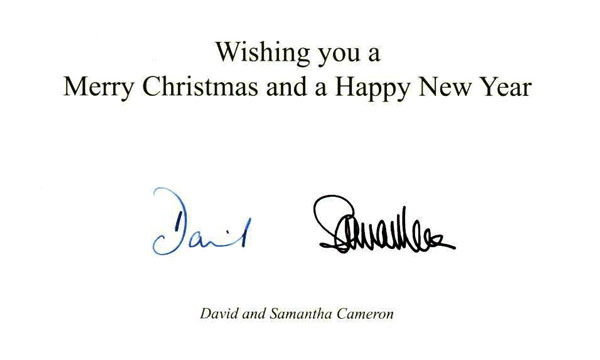 Wishing you a
Merry Christmas and a Happy New Year
David Samantha
David and Samantha Cameron